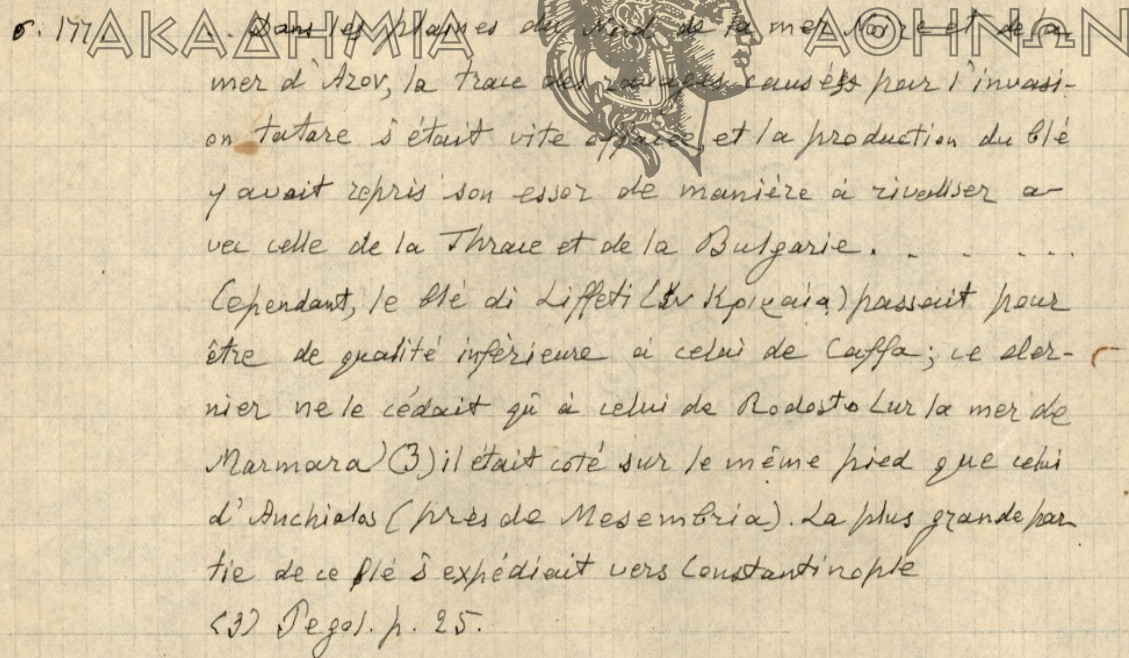 σ. 177. . . Dans les plaines du Nord de la mer Noire et de la
ΑΚΑΔΗΜΙΑ ΑΘΗΝΩΝ
mer d'Azov, la trace des ravages causés par l'invasi-
on tatare s'était vite effacée, et la production du blé
y avait repris son essor de manière à rivaliser a-
vec celle de la Thrace et de la Bulgarie. . . . . .
Cependant, le blé di Liffeti (ἐν Κριμαίᾳ) passait pour
être de qualité infèrieure à celui de Caffa; ce der-
nier ne le cédait qu'à celui de Rodosto (sur la mer de
Marmara) (3) il était coté sur le même pied que celui
d'Anchialos (près de Mesembria). La plus grande par-
tie de ce blé s'expédiait vers Constantinople
(3) Pegol. p. 25.